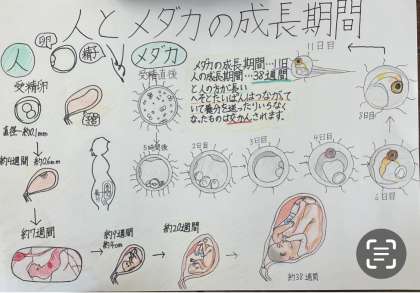 人とメダカの成長期間
人
卵
精子
メダカ
受精卵
直径…約0.1mm
子宮
受精直後
メダカの成長期間…11日
人の成長期間…38週間
と人の方が長い
へそとたいばんはつながって
いて養分を送ったりいらなく
なったものは交かんされます。
11日目
8日目
約4週間 約0.6mm
5時間後
2日目
3日目
4日目
6日目
約7週間
約9週間
約4cm
約20週間
約38週間